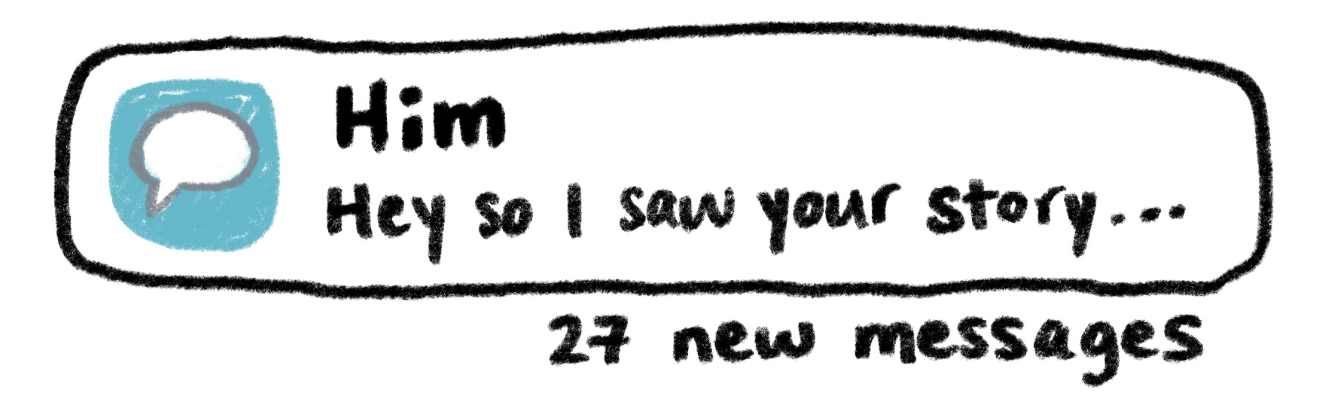 Him
Hey so I saw your story...
27 new messages